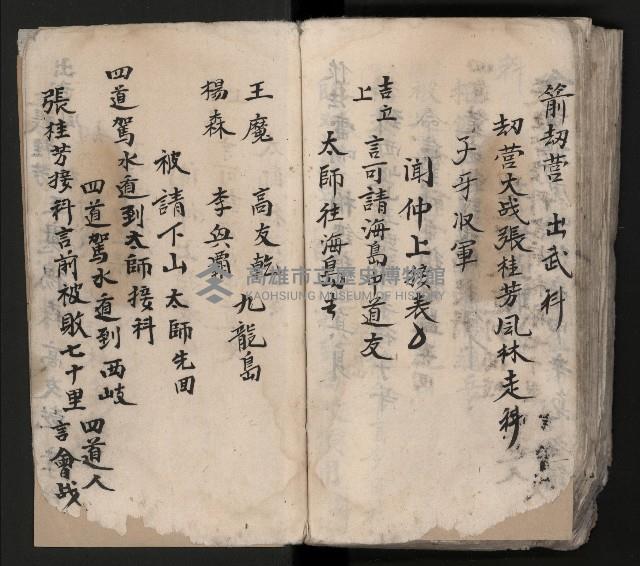 箭劫营 出武科
劫营大战張桂芳风林走科
子牙收軍
闻仲上接表
吉立上 言可請海島中道友
太師往海島
王魔 高友乾 九龍島
楊森 李興霸
被請下山太師先回
四道駕水遁到太師接科
四道駕水遁到西岐 四道人
張桂芳接科言前被敗七十里言會战
高雄市立歷史博物館
KAOHSIUNG MUSEUM OF HISTORY